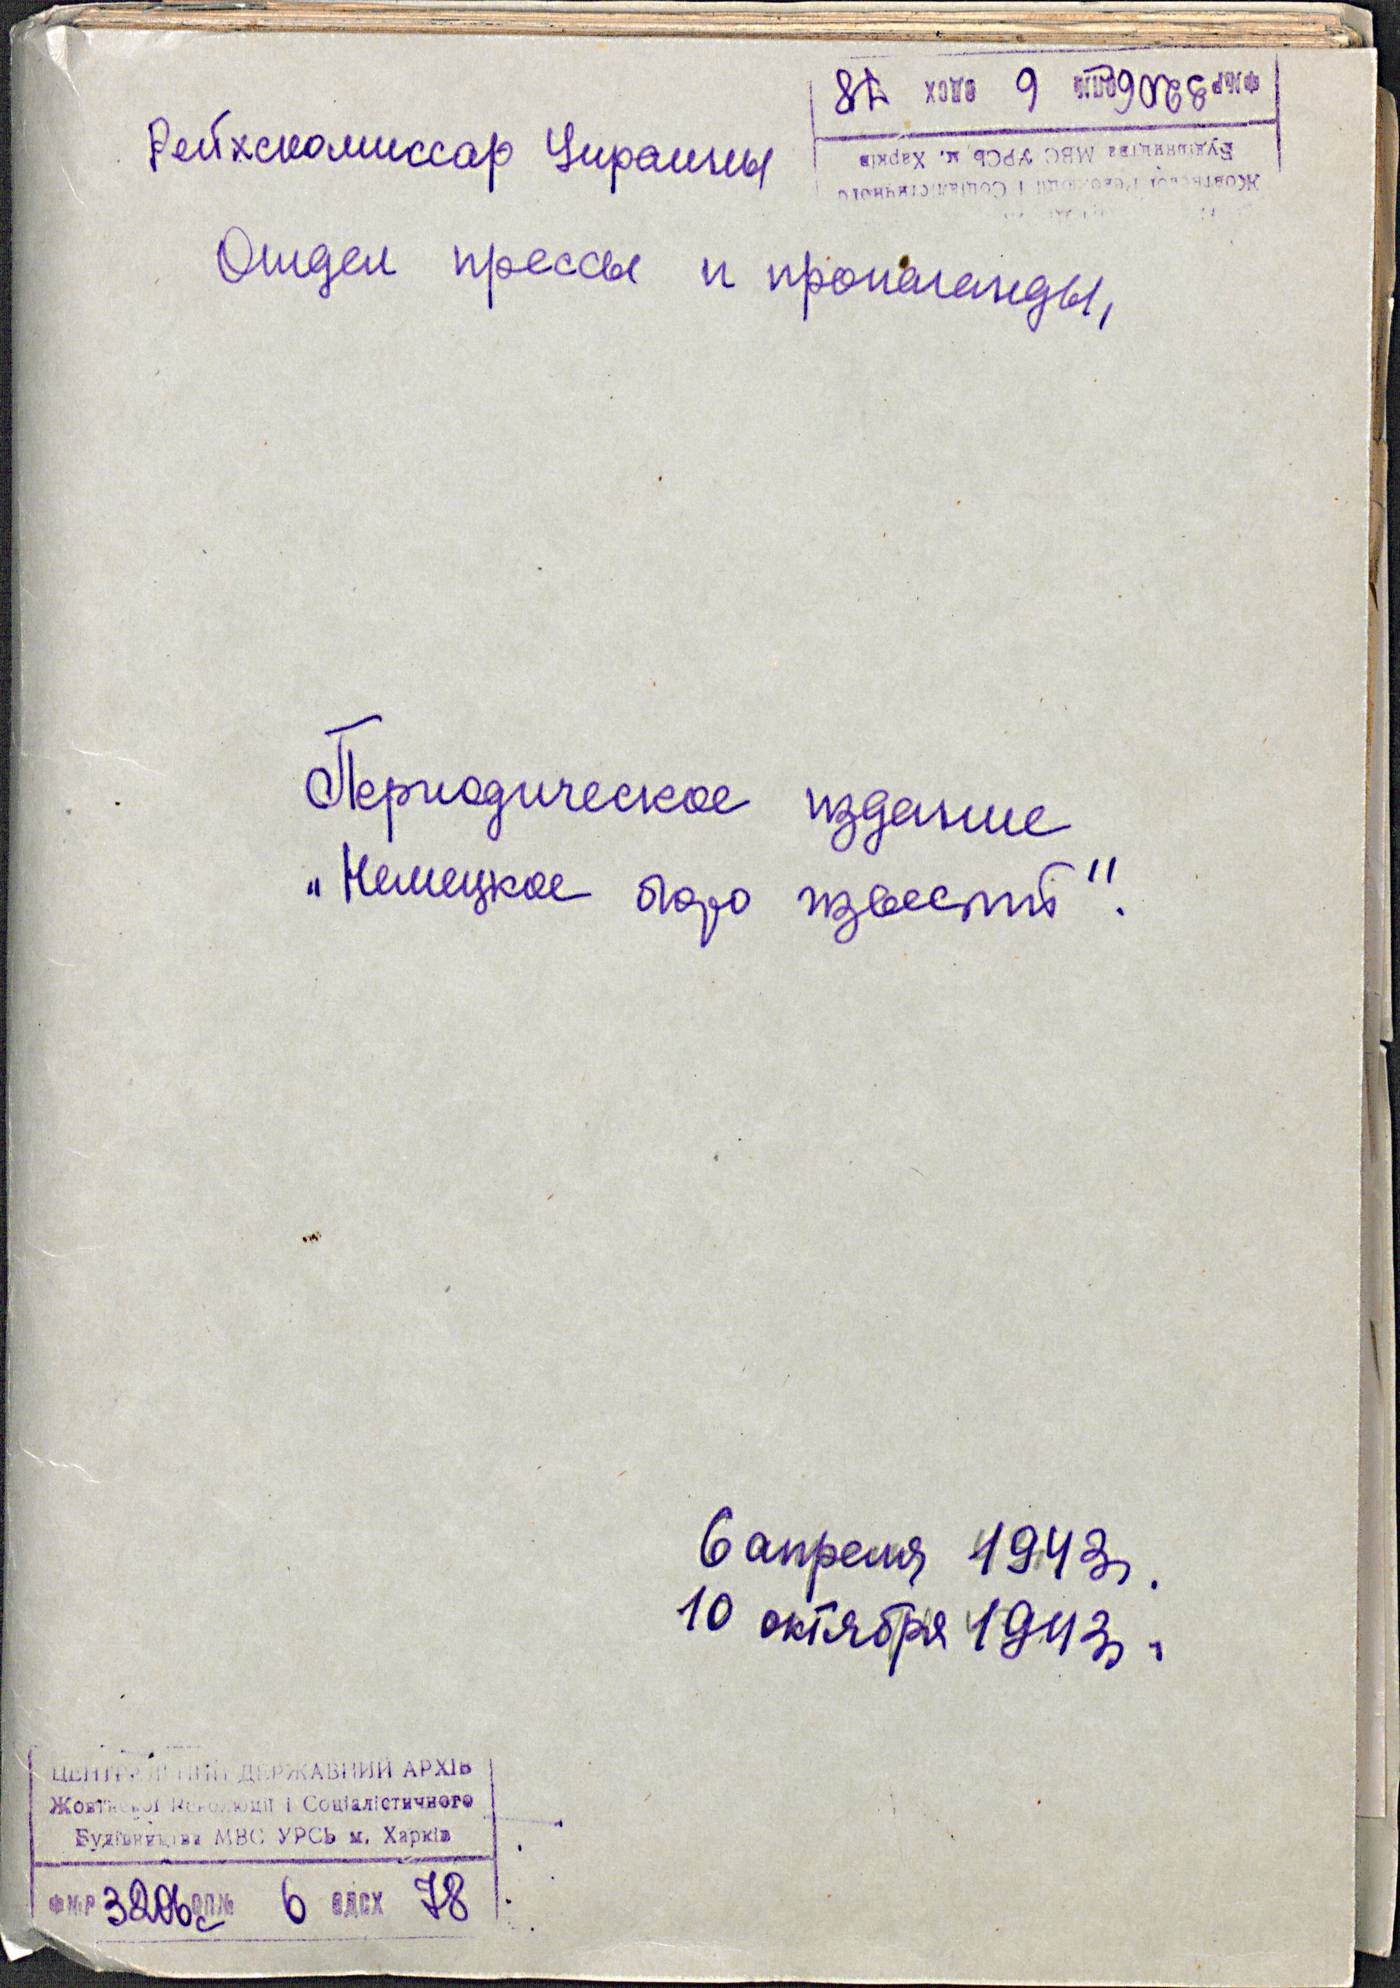 Рейхскомиссар Украины
Отдел прессы и пропаганды,
Ф№Р 3206с ОП№ 6 ОДСХ 78
Будівництва МВС УРСЬ м. Харків
Жовтневої Революції і Соціалістичного
Периодическое издание
„Немецкое бюро известий".
6 апреля 1943г.
10 октября 1943г.
ЦЕНТРАЛЬНИЙ ДЕРЖАВНИЙ АРХІВ
Жовтневої Революції і Соціалістичного
Будівництва МВС УРСЬ м. Харків
Ф№Р 3206с ОП№ 6 ОДСХ 78